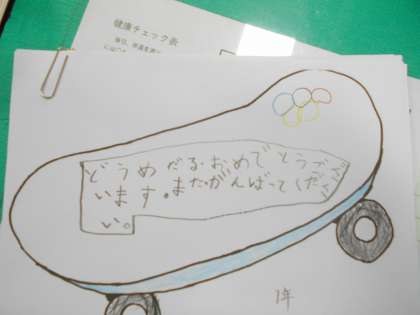 健康チェック表
どうめだる・おめでとうござ
います。またがんばってくださ
い。
1年